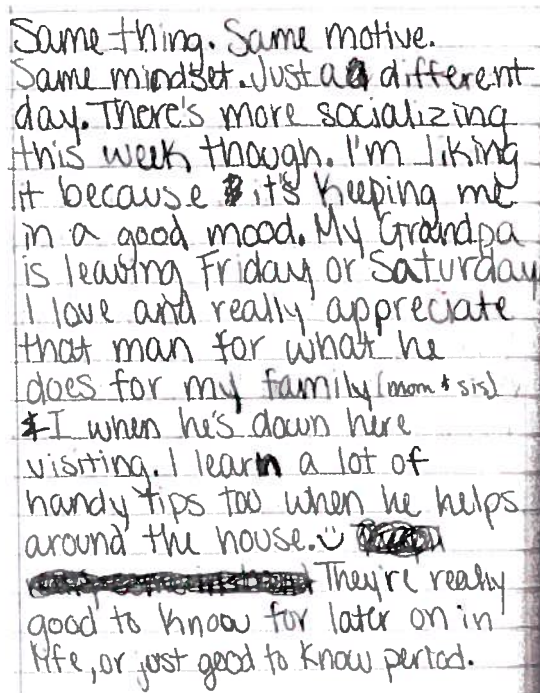 Same thing. Same motive.
Same mindset. Just a different
day. There's more socializing
this week though. I'm liking
it because it's keeping me
in a good mood. My Grandpa
is leaving Friday or Saturday
I love and really appreciate
that man for what he
does for my family (mom & sis)
& I when he's down here
visiting. I learn a lot of
handy tips too when he helps
around the house. :)
They're really
good to know for later on in
life, or just good to know period.